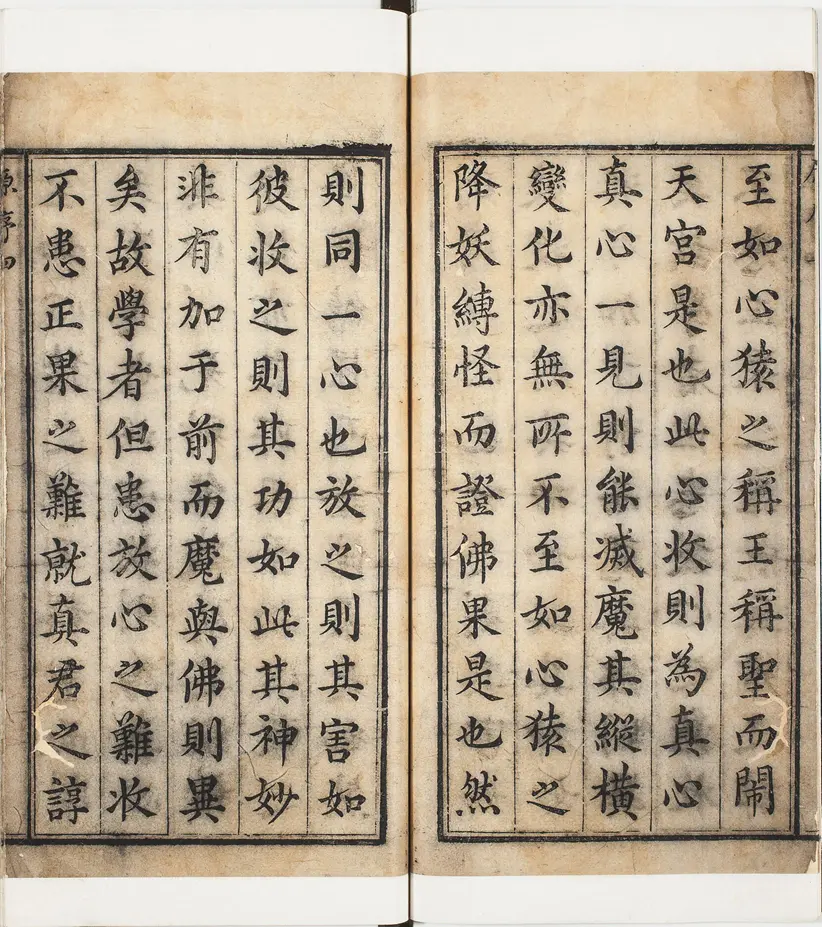 至如心猿之稱王稱聖而鬧
天宮是也此心收則為真心
真心一見則能滅魔其縱橫
變化亦無所不至如心猿之
降妖縛怪而證佛果是也然
則同一心也放之則其害如
彼收之則其功如此其神妙
非有加于前而魔與佛則異
矣故學者但患放心之難收
不患正果之難就真君之諄
原序四